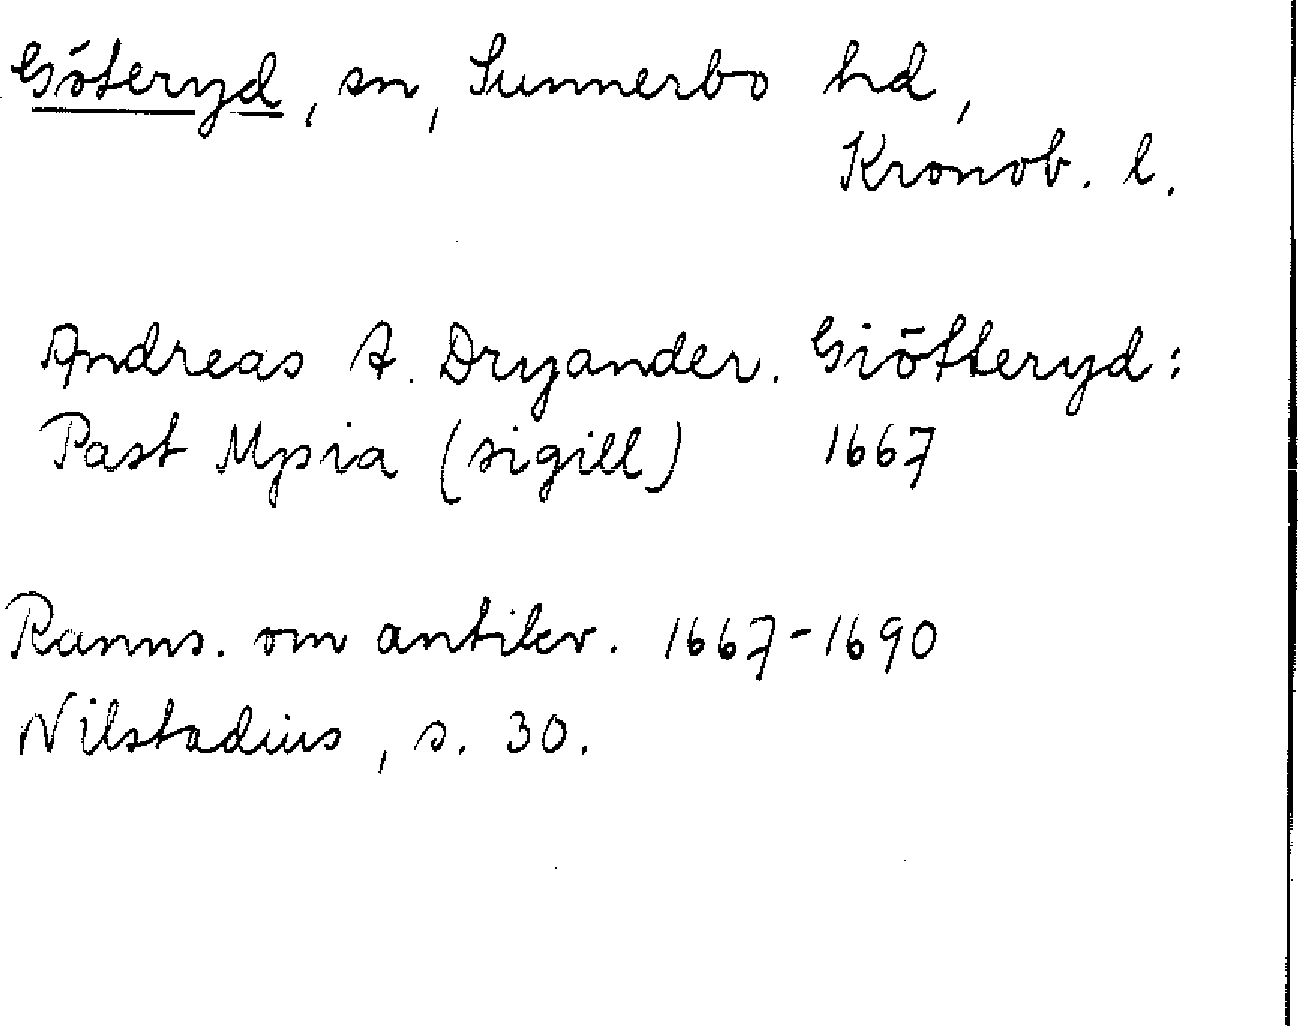 Göteryd, sn, Sunnerbo hd,
Kronob. l.
Andreas A. Dryander. Giötteryd:
Past Mpsia (sigill) 1667
Ranns. om antikv. 1667-1690
Nilstadius, s. 30.